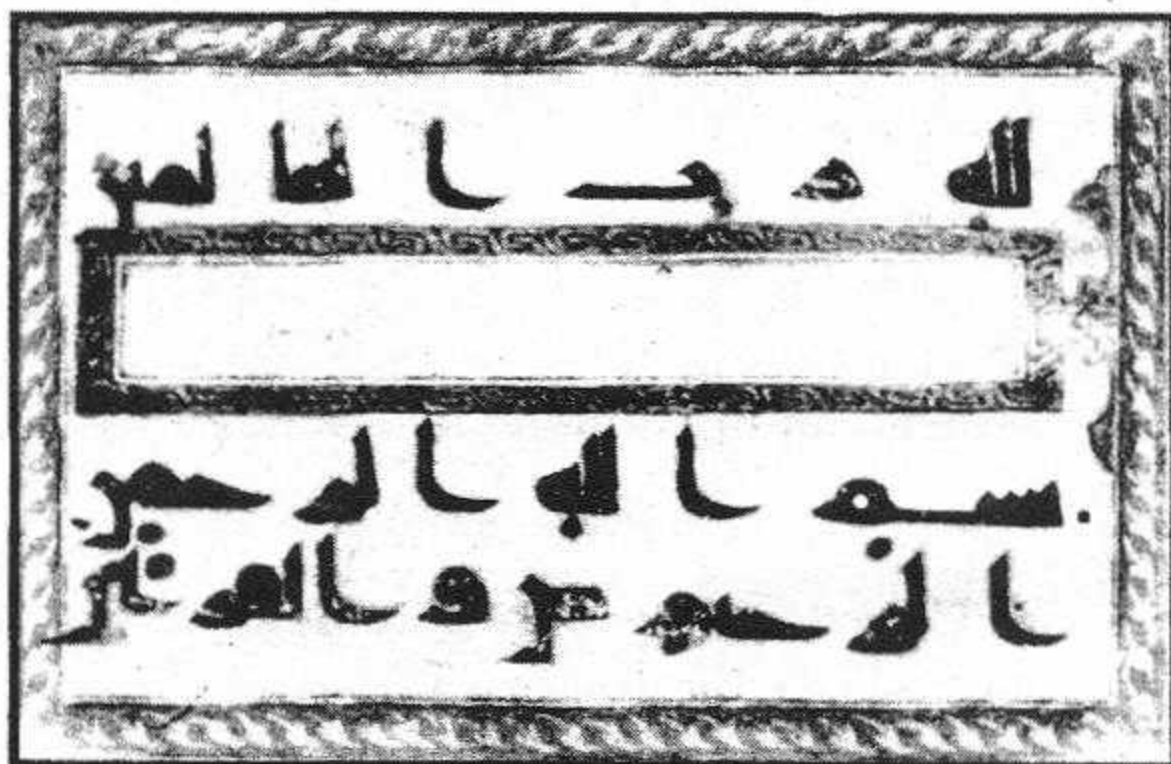 لله رب العالمين
بسم الله الرحمن
الرحيم ص والقران